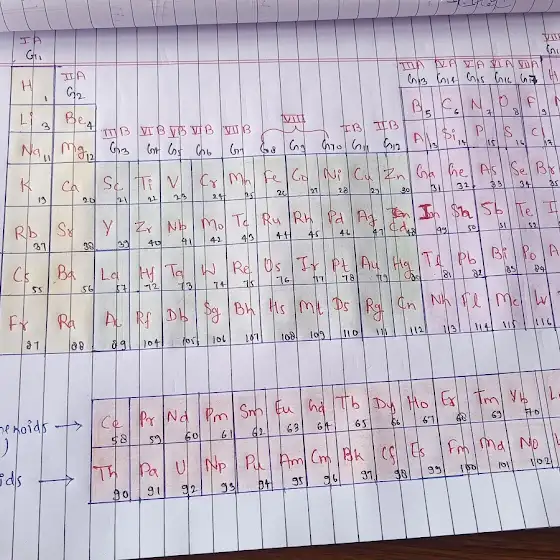 IA
G1
IIA
G2
IIIA IVA VA VIA VIIA
G13 G14 G15 G16 G17
H 1
Li 3 Be 4
B 5 C 6 N 7 O 8 F 9
IIIB IVB VB VIB VIIB VIII IB IIB
G3 G4 G5 G6 G7 G8 G9 G10 G11 G12
Na 11 Mg 12
Al 13 Si 14 P 15 S 16 Cl
K 19 Ca 20 Sc 21 Ti 22 V 23 Cr 24 Mn 25 Fe 26 Co 27 Ni 28 Cu Zn 30 Ga 31 Ge 32 As 33 Se 34 Br
Rb 37 Sr 38 Y 39 Zr 40 Nb 41 Mo 42 Tc 43 Ru 44 Rh 45 Pd 46 Ag 47 Cd 48 In 49 Sn 50 Sb 51 Te 52 I
Cs 55 Ba 56 La 57 Hf 72 Ta 73 W 74 Re 75 Os 76 Ir 77 Pt 78 Au 79 Hg 80 Tl 81 Pb 82 Bi 83 Po 84 A
Fr 87 Ra 88 Ac 89 Rf 104 Db 105 Sg 106 Bh 107 Hs 108 Mt 109 Ds 110 Rg 111 Cn 112 Nh 113 Fl 114 Mc 115 116
Ce 58 Pr 59 Nd 60 Pm 61 Sm 62 Eu 63 Gd 64 Tb 65 Dy 66 Ho 67 Er 68 Tm 69 Yb 70
Th 90 Pa 91 U 92 Np 93 Pu 94 Am 95 Cm 96 Bk 97 Cf 98 Es 99 Fm 100 Md 101 No 102